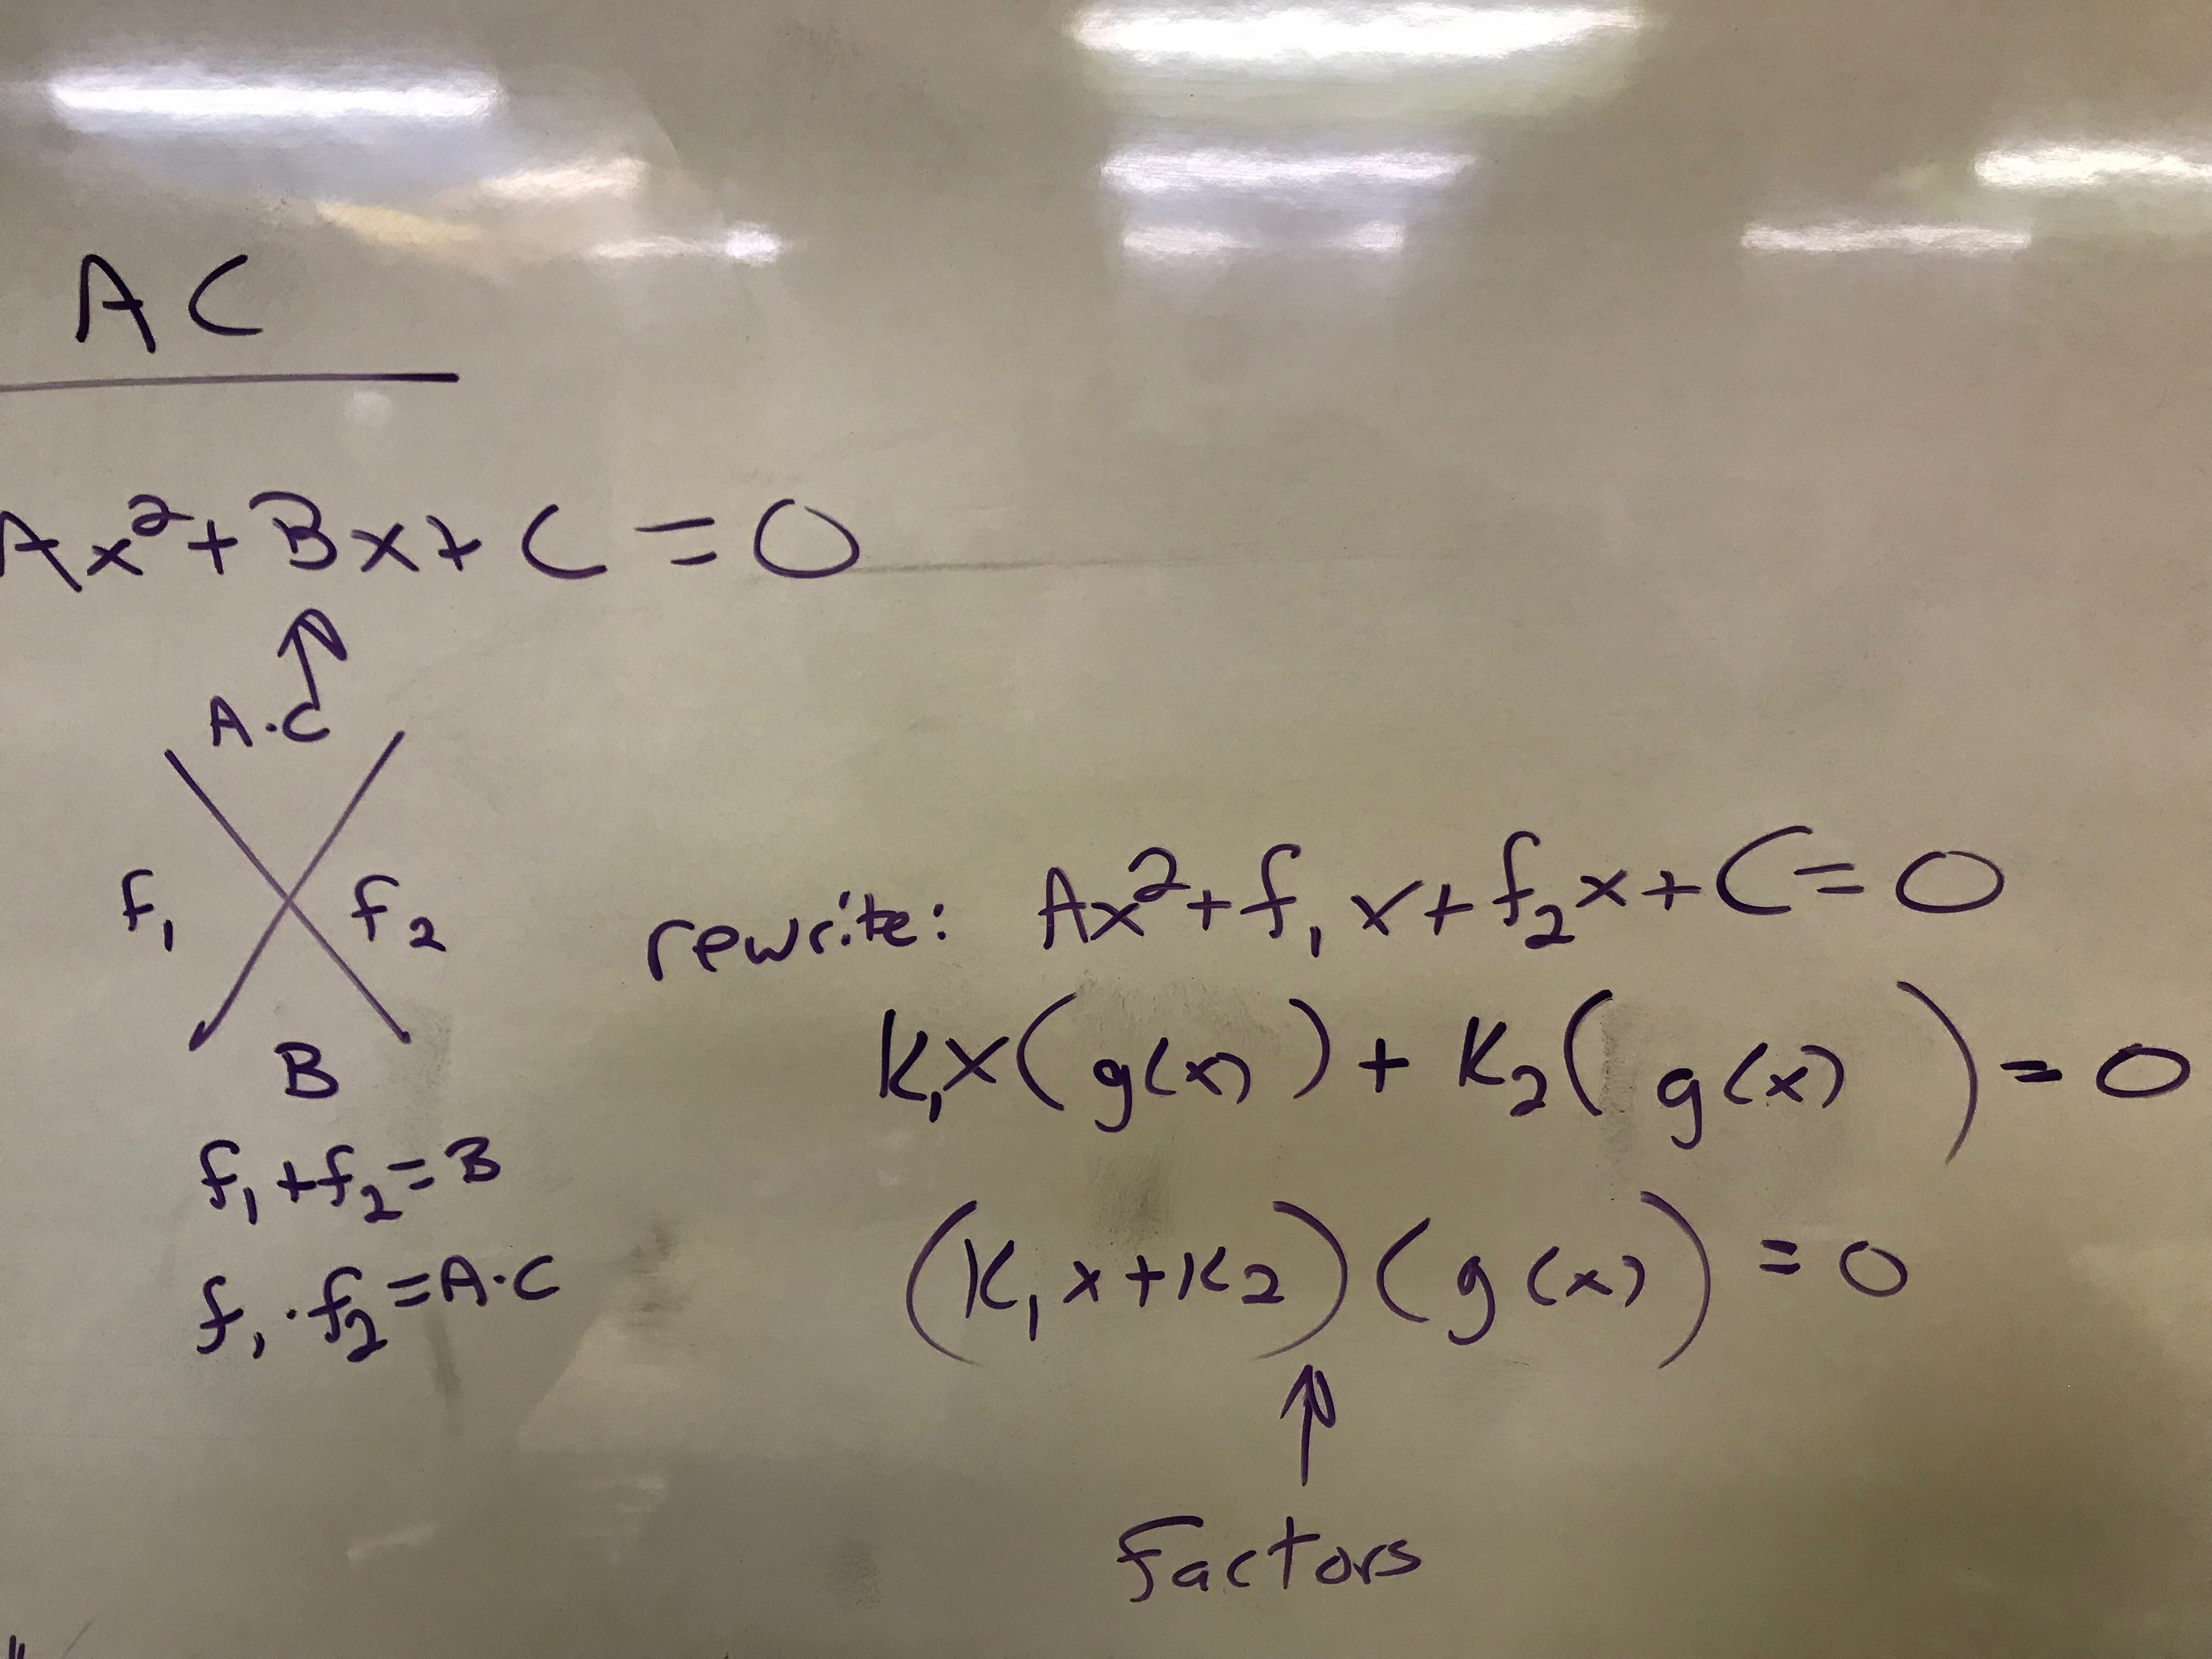 AC
Ax²+Bx+C=0
A·C
f₁ f₂
B
f₁+f₂=B
f₁·f₂=A·C
rewrite: Ax²+f₁x+f₂x+C=0
K₁x(g(x))+K₂(g(x))=0
(K₁x+K2)(g(x))=0
Factors